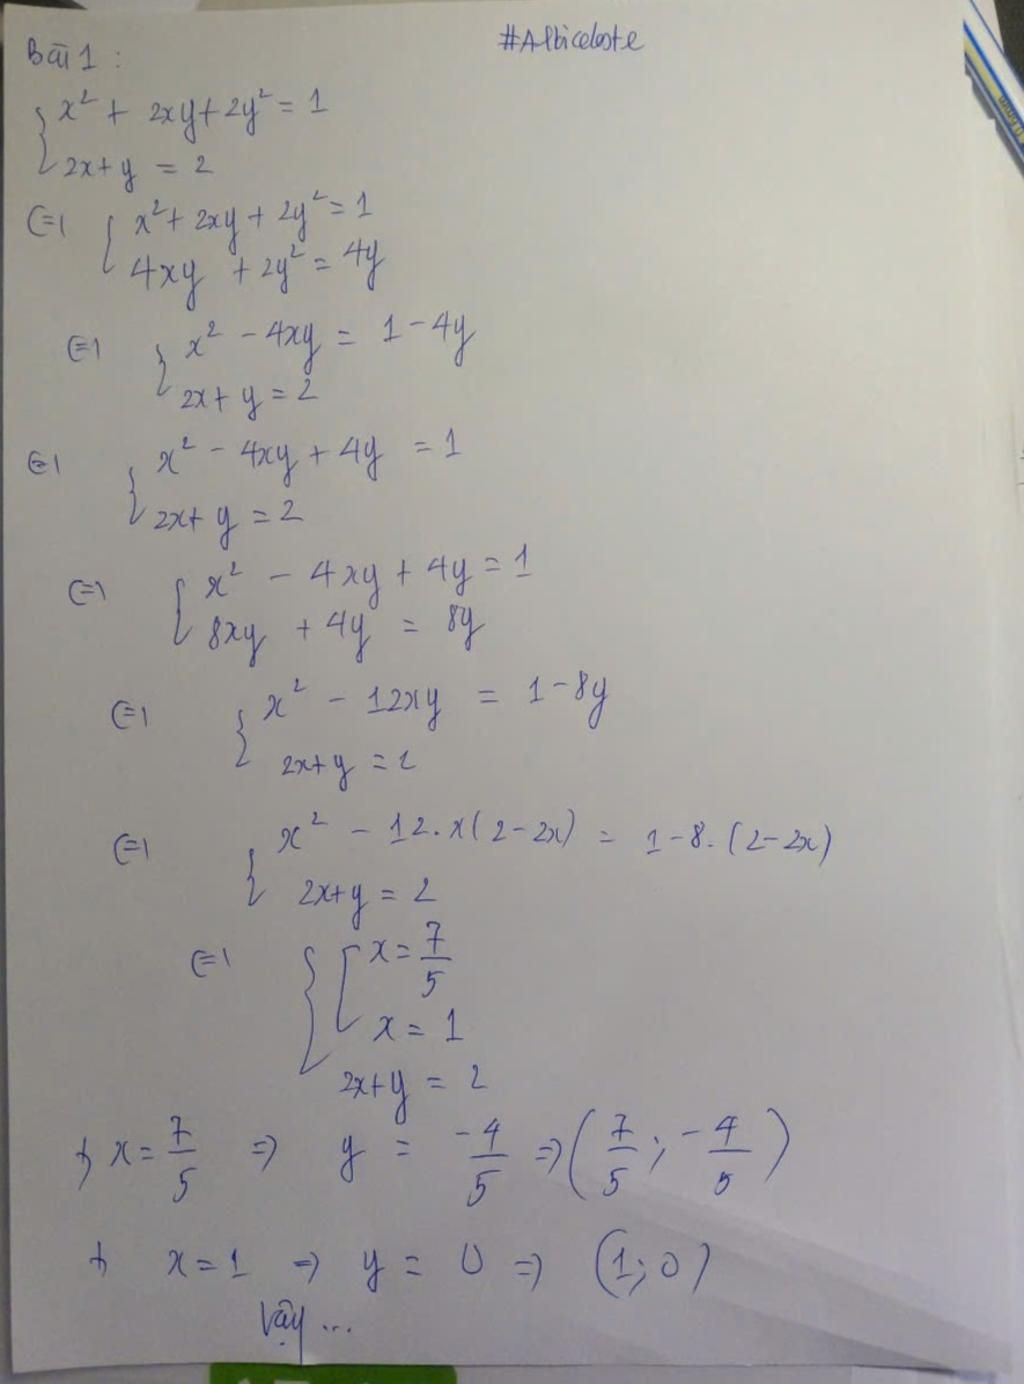 #Albiceleste
Bài 1 :
{ x² + 2xy + 2y² = 1
2x + y = 2
<=> { x² + 2xy + 2y² = 1
4xy + 2y² = 4y
<=> { x² - 4xy = 1 - 4y
2x + y = 2
<=> { x² - 4xy + 4y = 1
2x + y = 2
<=> { x² - 4xy + 4y = 1
8xy + 4y = 8y
<=> { x² - 12xy = 1 - 8y
2x + y = 2
<=> { x² - 12.x(2 - 2x) = 1 - 8.(2 - 2x)
2x + y = 2
<=> { [ x = 7/5
x = 1
2x + y = 2
+ x = 7/5 => y = -4/5 => (7/5 ; -4/5)
+ x = 1 => y = 0 => (1; 0)
Vậy ...